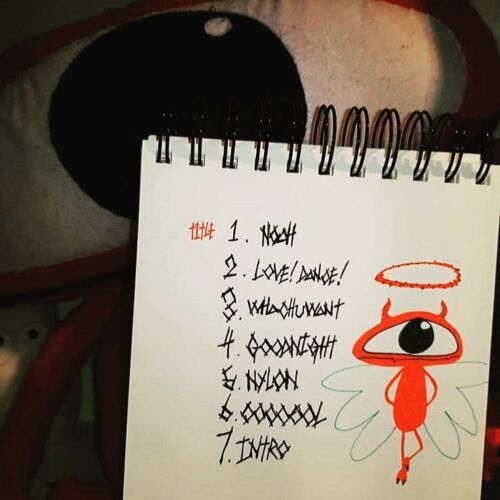 title 1. NOAH
2. LOVE! DANCE!
3. WHACHUWANT
4. GOODNIGHT
5. NYLON
6. OOOOOOL
7. INTRO